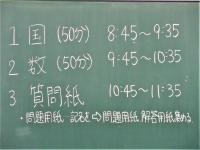 1 国 (50分) 8:45〜9:35
2 数 (50分) 9:45〜10:35
3 質問紙 10:45〜11:35
・問題用紙 記名を⇨問題用紙、解答用紙集める。